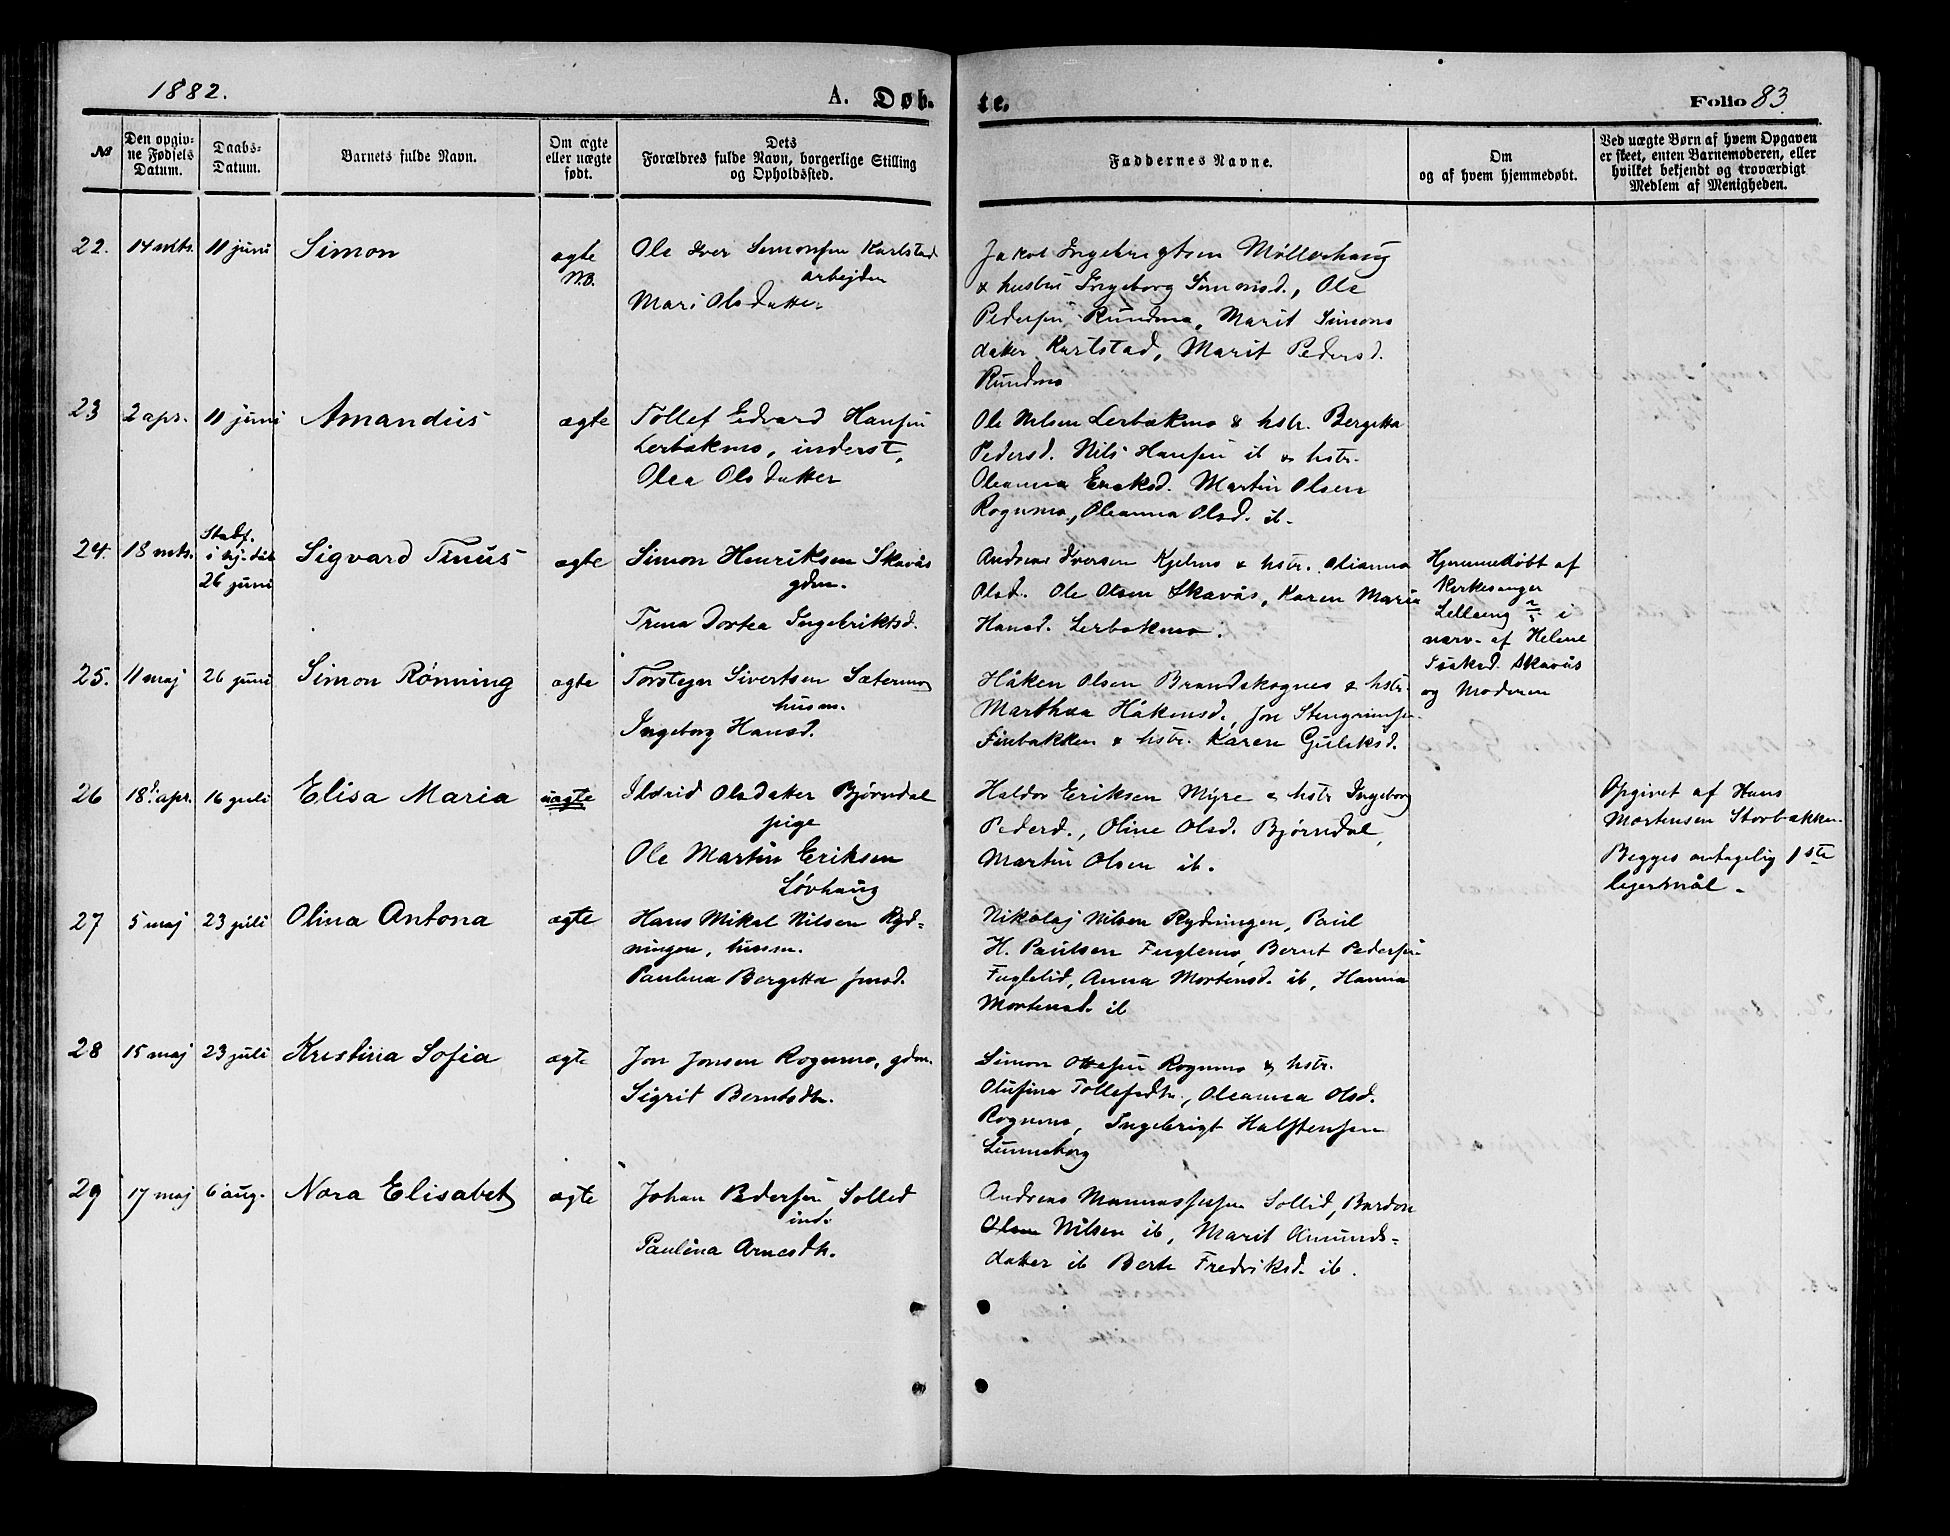 1882.
A. Døb-
te.
Folio 83
№
Den opgiv-
ne Fødsels
Datum.
Daabs-
Datum.
Barnets fulde Navn.
Om ægte
eller uægte
født.
Dets
Forældres fulde Navn, borgerlige Stilling
og Opholdssted.
Faddernes Navne.
Om
og af hvem hjemmedøbt.
Ved uægte Børn af hvem Opgaven
er skeet, enten Barnemoderen, eller
hvilket bekjendt og troværdigt
Medlem af Menigheden.
22.
14 mts.
11 juni
Simon
ægte
N.B.
Ole Iver Simonsen Karlstad
arbejder
Mari Olsdatter
Jakob Ingebrigtsen Møllerhaug
& hustru Ingeborg Simonsd., Ole
Pedersen Rundmo, Marit Simons
datter Karlstad, Marit Pedersd.
Rundmo
23
2 apr.
11 juni
Amandus
ægte
Tollef Edvard Hansen
Lerbakmo, inderst,
Olea Olsdatter
Ole Nilsen Lerbakmo & hstr. Bergitta
Pedersd. Nils Hansen ib & hstr.
Oleanna Eriksd. Martin Olsen
Rognmo, Oleanna Olsd. ib.
24.
18 mts.
Stadf.
i hj. dåb
26 juni
Sigvard Tinus
ægte
Simon Henriksen Skavås
gdm.
Trina Dortea Ingebriktsd.
Andreas Iversen Kjelmo & hstr. Olianna
Olsd. Ole Olsen Skavås, Karen Maria
Hansd. Lerbakmo.
Hjemmedøbt af
Kirkesanger
Lelleeng i
nærv. af Helene
Isaksd. Skavås
og Moderen
25.
11 maj
26 juni
Simon Rønning
ægte
Torstejn Sivertsen Sætermo
husm.
Ingeborg Hansd.
Håken Olsen Brandskognes & hstr.
Marthea Håkensd., Jon Stengrimsen
Finbakken & hstr. Karen Gulaksd.
26
18 apr.
16 juli
Elisa Maria
uægte
Ildrid Olsdatter Bjørndal
pige
Ole Martin Eriksen
Løvhaug
Haldor Eriksen Myre & hstr Ingeborg
Pedersd., Oline Olsd. Bjørndal,
Martin Olsen ib.
Opgivet af Hans
Mortensen Storbakken.
Begges antagelig 1ste
lejermål.
27
5 maj
23 juli
Olina Antona
ægte
Hans Mikal Nilsen Ryd-
ningen, husm.
Paulina Bergitta Jensd.
Nikolaj Nilsen Rydningen, Paul
H. Paulsen Fuglemo, Bernt Pedersen
Fuglelid, Anna Mortensd. ib, Hanna
Mortensd. ib
28
15 maj
23 juli
Kristina Sofia
ægte
Jon Jonsen Rognmo, gdm.
Sigrid Berntsdtr.
Simon Ottesen Rognmo & hstr.
Olufina Tollefsdtr., Oleanna Olsd.
Rognmo, Ingebrigt Halstensen
Lunneborg
29
17 maj
6 aug.
Nora Elisabet
ægte
Johan Pedersen Sollid
ind.
Paulina Arnesdtr.
Andreas Mannassesen Sollid, Bardon
Olsen Nilsen ib, Marit Amunds-
datter ib Berte Fredriksd. ib.